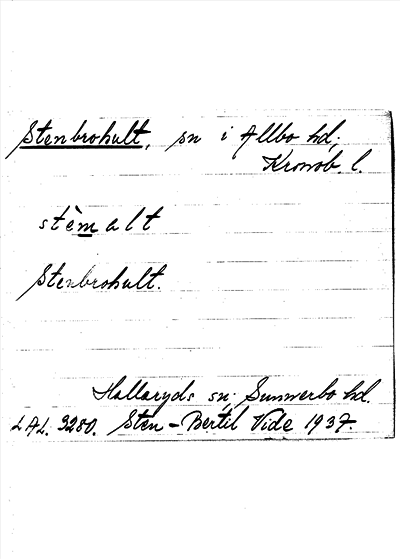 Stenbrohult, sn i Allbo hd;
Kronob. l.
stèmalt
Stenbrohult.
Hallaryds sn; Sunnerbo hd.
LAL. 3280. Sten-Bertil Vide 1937.